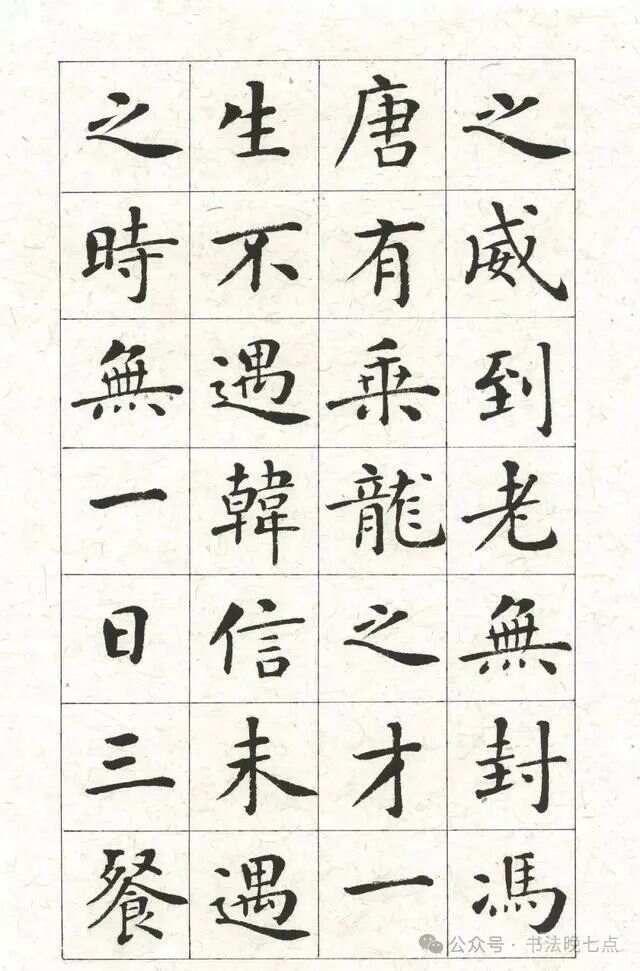 之威到老無封馮
唐有乘龍之才一
生不遇韓信未遇
之時無一日三餐
公众号·书法晚七点